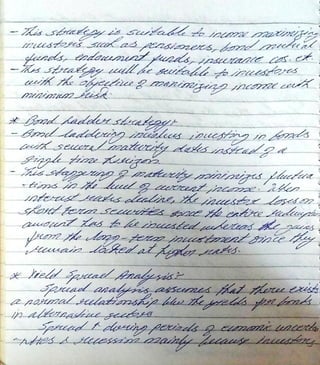 - This strategy is suitable to income maximizing
investors such as pensioners, bond mutual
funds, endowment funds, insurance cos. et
- This strategy will be suitable to investors
with the objective of maximizing income with
minimum risk
* Bond ladder strategy:-
- Bond laddering involves investing in bonds
with several maturity dates instead of a
single time horizon
- This staggering of maturity minimizes fluctua
-tions in the level of current income. When
interest rates decline, the investor loses on
short term securities since the entire redemption
amount has to be invested whereas the gains
from the long-term investment since they
remain locked at higher rates.
* Yield Spread Analysis:-
Spread analysis assumes that there exists
a normal relationship b/w the yields for bonds
in alternative sectors
Spread ↑ during periods of economic uncerta
recession mainly because investors